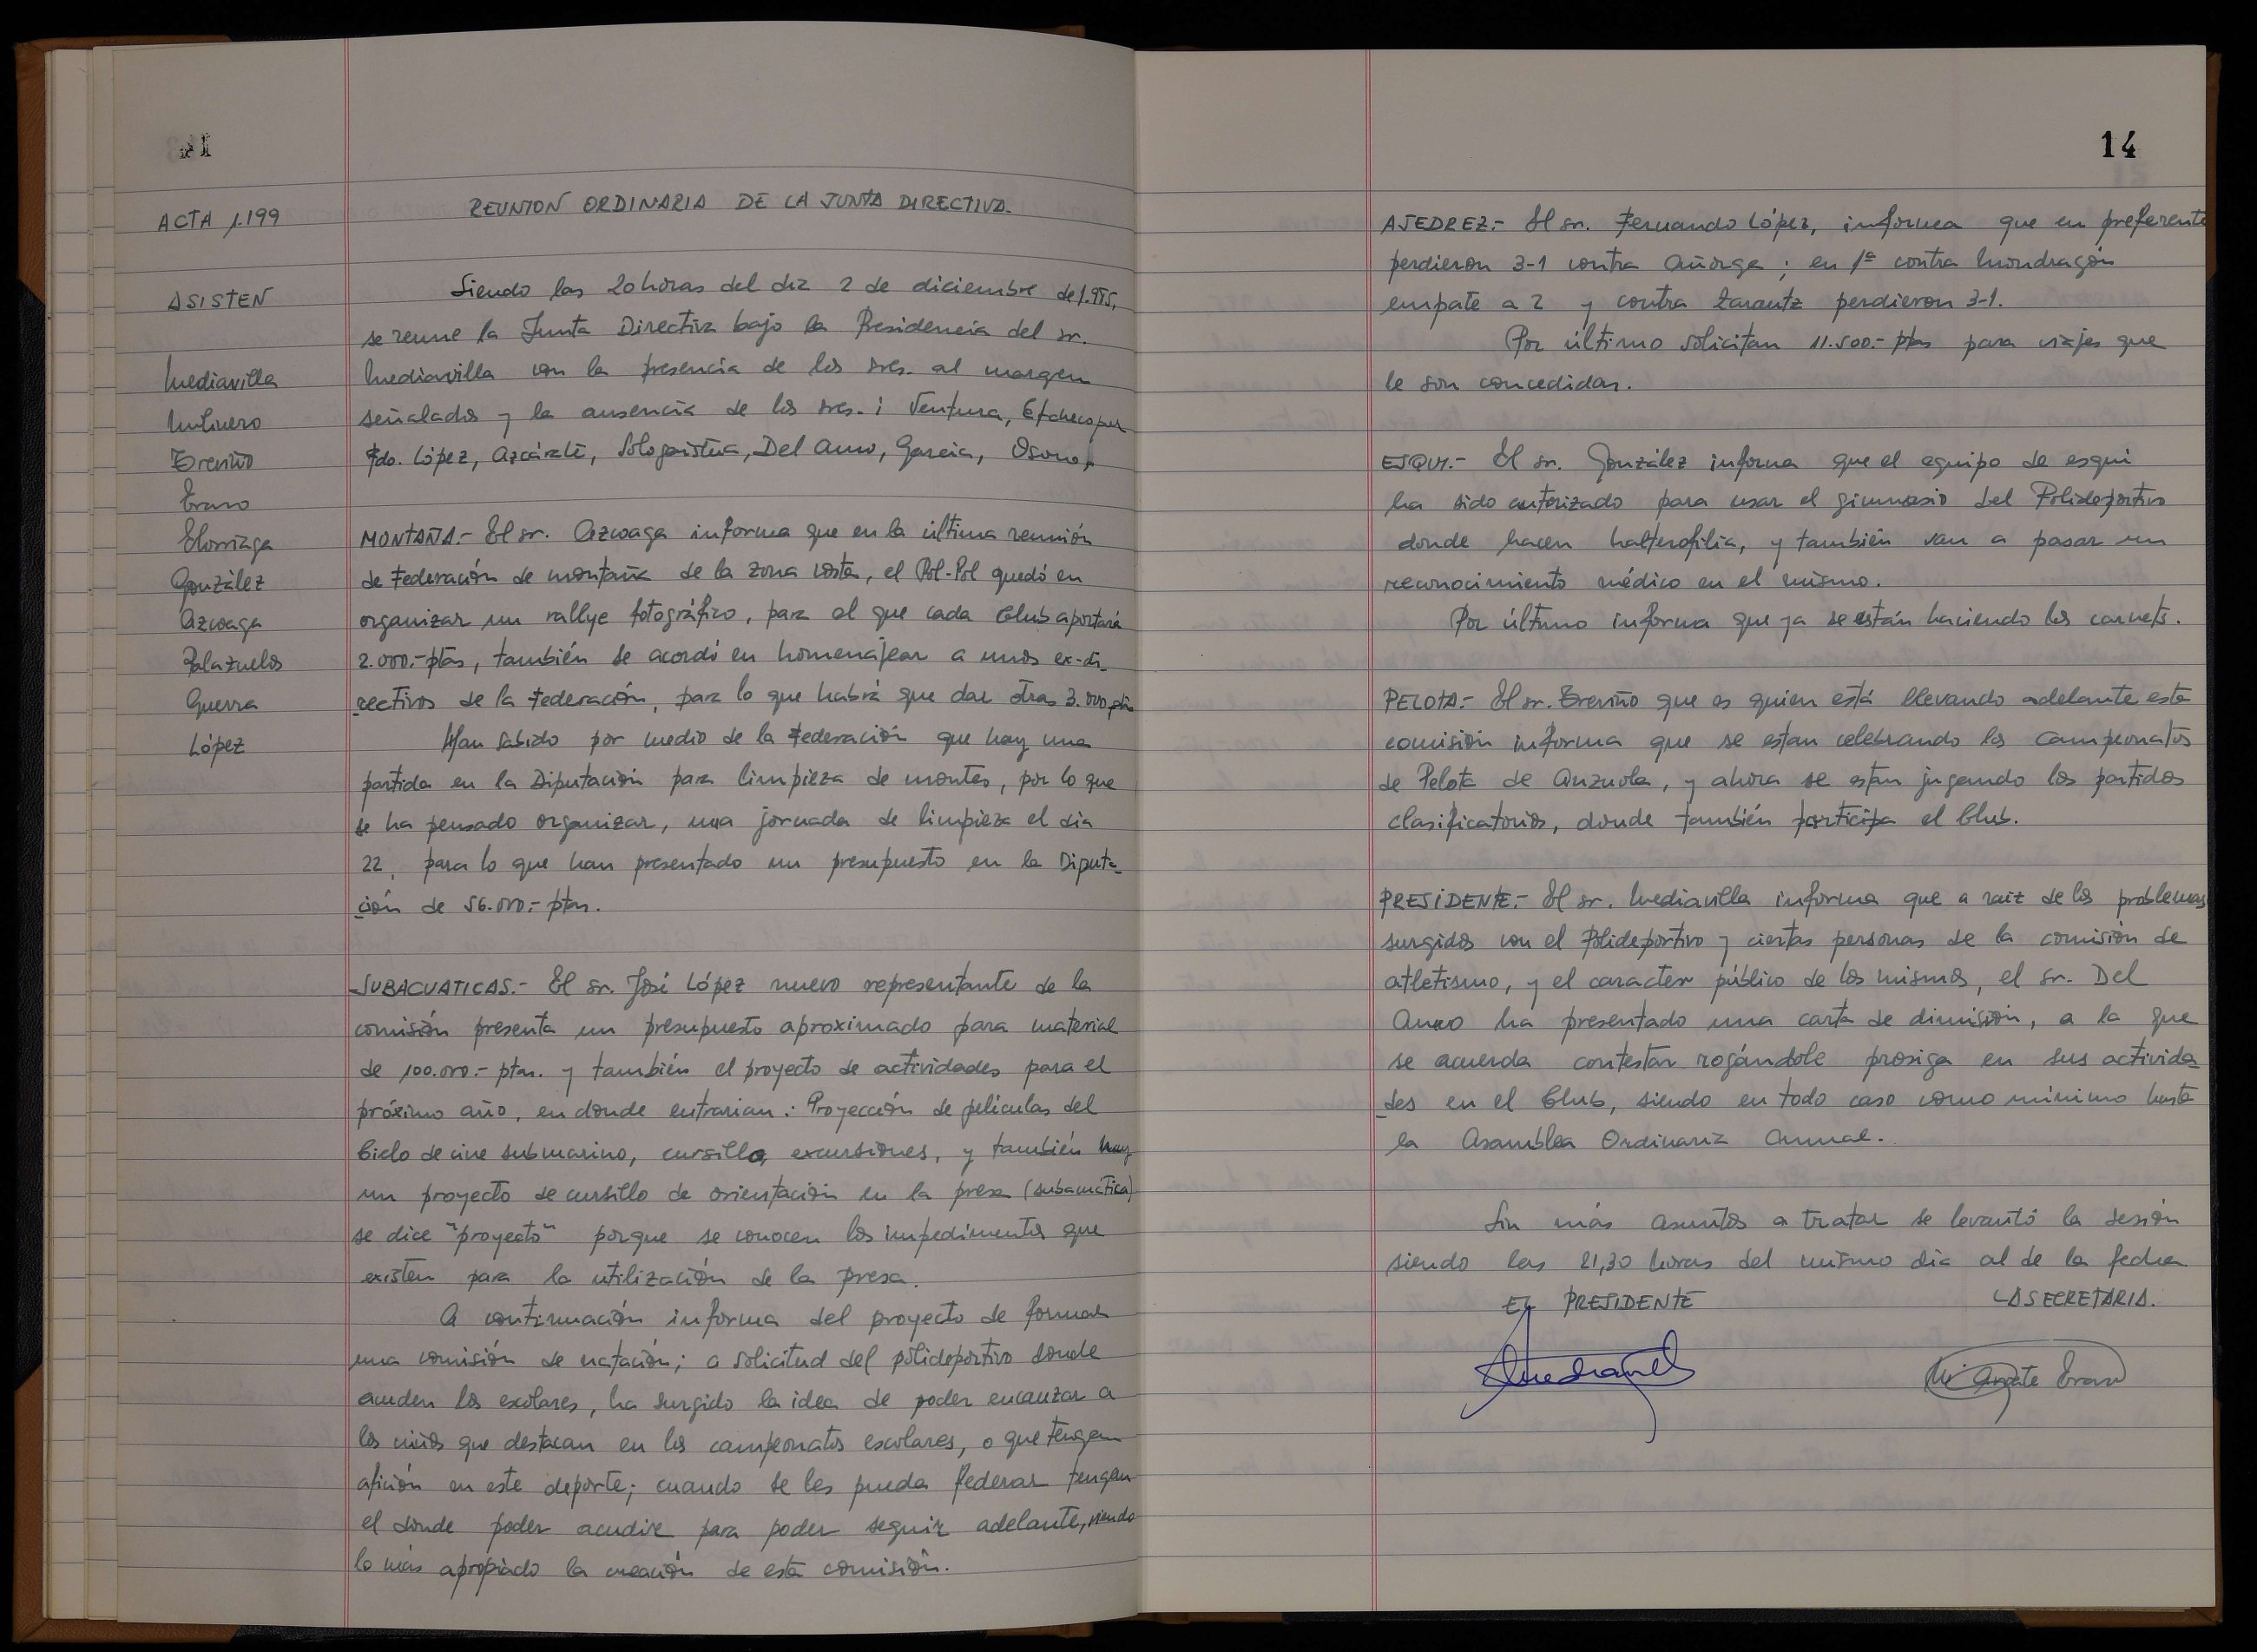 ACTA 1.199
ASISTEN
Mediavilla
Mulinero
Treviño
Eraso
Elorriaga
González
Azcoaga
Palazuelos
Guerra
López
REUNION ORDINARIA DE LA JUNTA DIRECTIVA.
Siendo las 20 horas del dia 2 de diciembre de 1.985,
se reune la Junta Directiva bajo la Presidencia del sr.
Mediavilla con la presencia de los sres. al margen
señalados y la ausencia de los sres. : Ventura,
Fdo. López, Azcárate, Sologaistua, Del Amo, Garcia, Osorio,
MONTAÑA.- El sr. Azcoaga informa que en la última reunión
de Federación de montaña de la zona costa, el Pol-Pol quedó en
organizar un rallye fotográfico, para el que cada Club aportará
2.000.- ptas, también se acordó en homenajear a unos ex-di_
rectivos de la Federación, para lo que habrá que dar otras 3.000 ptas
Han sabido por medio de la Federación que hay una
partida en la Diputación para limpieza de montes, por lo que
se ha pensado organizar, una jornada de limpieza el dia
22, para lo que han presentado un presupuesto en la Diputa_
ción de 56.000.- ptas.
SUBACUATICAS.- El sr. José López nuevo representante de la
comisión presenta un presupuesto aproximado para material
de 100.000.- ptas. y también el proyecto de actividades para el
próximo año, en donde entrarian : Proyección de peliculas del
Ciclo de cine submarino, cursillo, excursiones, y también hay
un proyecto de cursillo de orientación en la presa (subacuática)
se dice "proyecto" porque se conocen los impedimentos que
existen para la utilización de la presa.
A continuación informa del proyecto de formar
una comisión de natación; a solicitud del polideportivo donde
acuden los escolares, ha surgido la idea de poder encauzar a
los niños que destacan en los campeonatos escolares, o que tengan
afición en este deporte; cuando se les pueda federar tengan
el donde poder acudir para poder seguir adelante, siendo
lo más apropiado la creación de esta comisión.
14
AJEDREZ.- El sr. Fernando López, informa que en preferente
perdieron 3-1 contra Añorga; en 1ª contra Mondragón
empate a 2 y contra Zarautz perdieron 3-1.
Por último solicitan 11.500.- ptas para viajes que
le son concedidas.
ESQUI.- El sr. González informa que el equipo de esqui
ha sido autorizado para usar el gimnasio del Polideportivo
donde hacen halterofilia, y también van a pasar un
reconocimiento médico en el mismo.
Por último informa que ya se están haciendo los carnets.
PELOTA.- El sr. Treviño que es quien está llevando adelante esta
comisión informa que se estan celebrando los Campeonatos
de Pelota de Anzuola, y ahora se estan jugando los partidos
clasificatorios, donde también participa el Club.
PRESIDENTE.- El sr. Mediavilla informa que a raiz de los problemas
surgidos con el Polideportivo y ciertas personas de la comisión de
atletismo, y el caracter público de los mismos, el sr. Del
Amo ha presentado una carta de dimisión, a la que
se acuerda contestar rogándole prosiga en sus activida_
des en el Club, siendo en todo caso como minimo hasta
la Asamblea Ordinaria Anual.
Sin más asuntos a tratar se levantó la sesión
siendo las 21,30 horas del mismo dia al de la fecha
EL PRESIDENTE LA SECRETARIA.
Mª Arrate Eraso